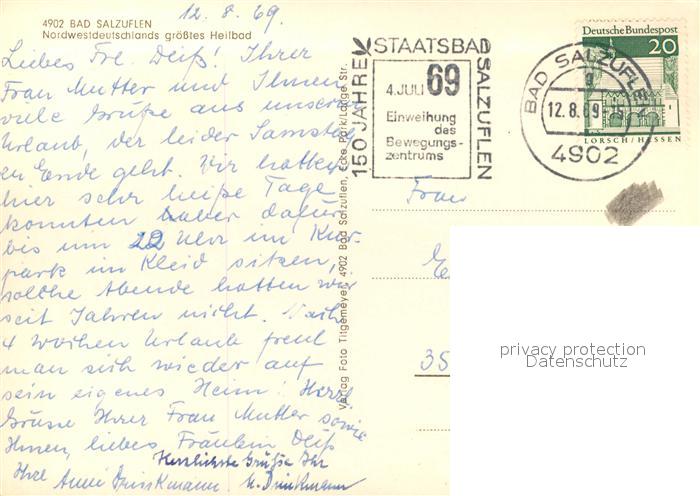 12. 8. 69.
4902 BAD SALZUFLEN
Nordwestdeutschlands größtes Heilbad
Liebes Frl. Deiß! Ihrer
Frau Mutter und Ihnen
viele Grüße aus unserm
Urlaub, der leider Samstag
zu Ende geht. Wir hatten
hier sehr heiße Tage
konnten aber dafür
bis um 22 Uhr im Kur-
park im Kleid sitzen,
solche Abende hatten wir
seit Jahren nicht. Nach
4 Wochen Urlaub freut
man sich wieder auf
sein eigenes Heim! Herzl.
Grüsse Ihrer Frau Mutter sowie
Ihnen, liebes Fräulein Deiß
Ihre Anni Brinkmann
Herzlichste Grüße Ihr
Brinkmann
Verlag Foto Tilgemeyer, 4902 Bad Salzuflen, Ecke Park/Lange Str.
150 JAHRE
STAATSBAD
SALZUFLEN
4. JULI 69
Einweihung
des
Bewegungs-
zentrums
BAD SALZUFLEN
g
12.8.69-15
4902
Deutsche Bundespost
20
LORSCH/HESSEN
Frau
35
privacy protection
Datenschutz